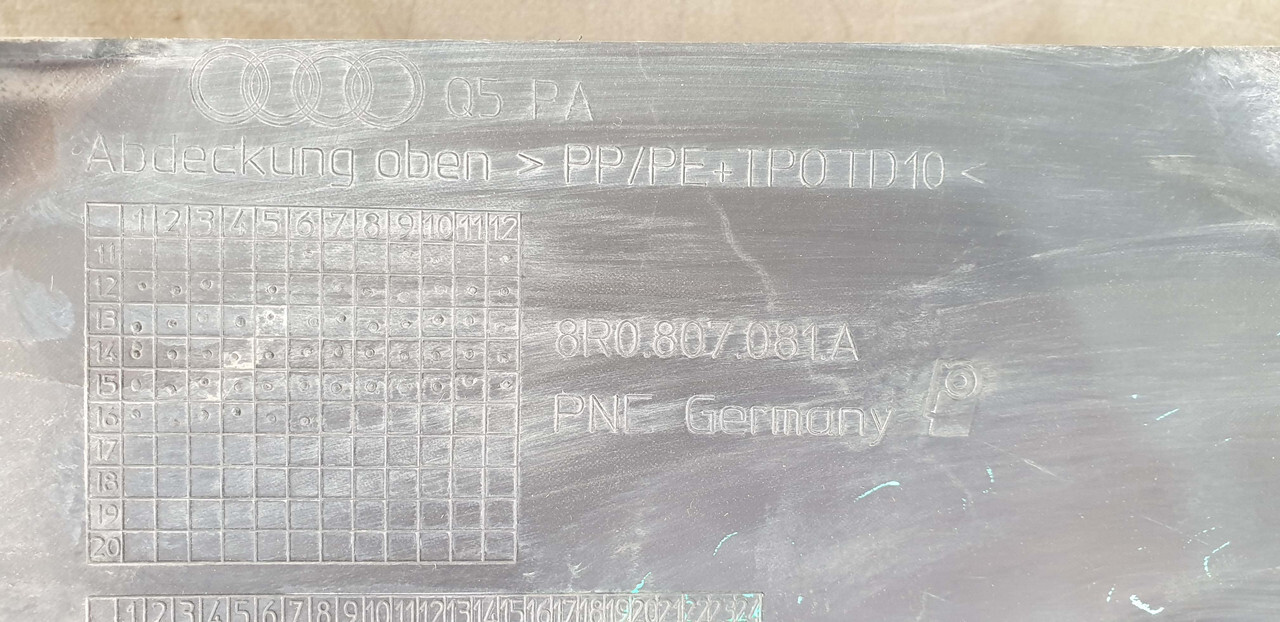 Q5 PA
Abdeckung oben > PP/PE+TPO TD10 <
1 2 3 4 5 6 7 8 9 10 11 12
11
12
13
14
15
16
17
18
19
20
8R0.807.081.A
PNF Germany
1 2 3 4 5 6 7 8 9 10 11 12 13 14 15 16 17 18 19 20 21 22 23 24